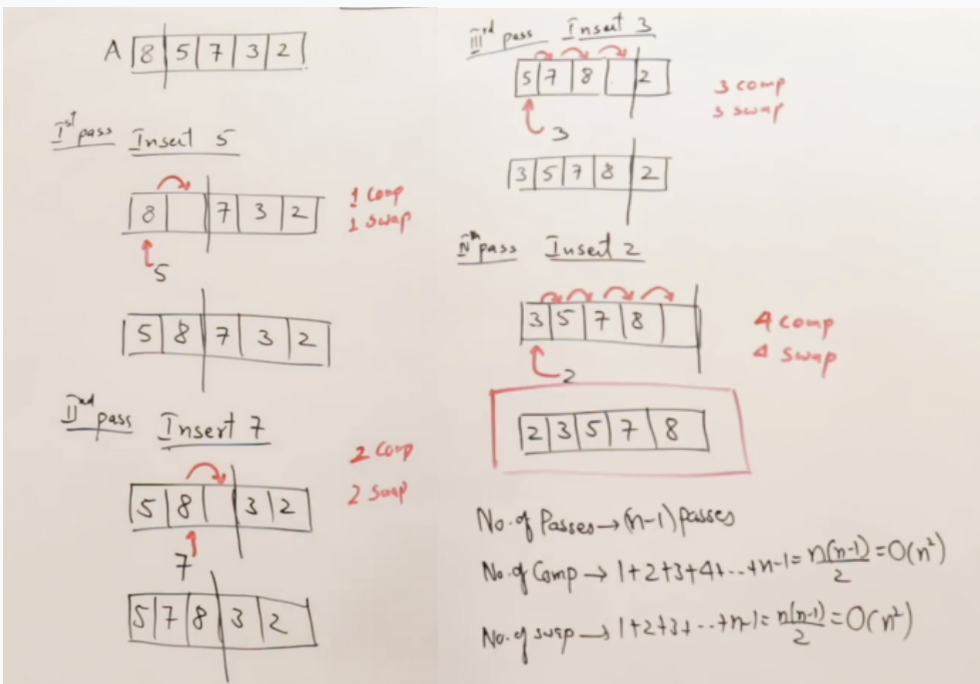 A 8 5 7 3 2
Ist pass Insert 5
8 7 3 2
1 Comp
1 swap
5
5 8 7 3 2
IInd pass Insert 7
2 Comp
2 Swap
5 8 3 2
7
5 7 8 3 2
IIIrd pass Insert 3
5 7 8 2
3 comp
3 swap
3
3 5 7 8 2
IVth pass Insert 2
3 5 7 8
4 comp
4 swap
2
2 3 5 7 8
No. of Passes → (n-1) passes
No. of Comp → 1+2+3+4+...+n-1 = n(n-1)/2 = O(n²)
No. of swap → 1+2+3+...+n-1 = n(n-1)/2 = O(n²)